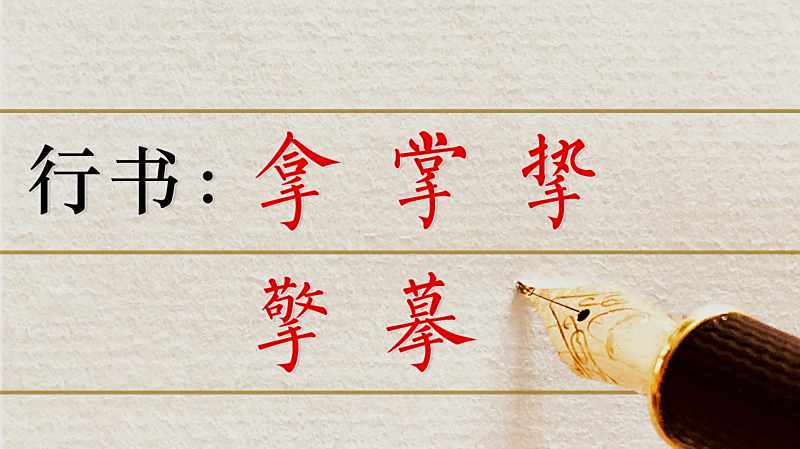 行书：拿 掌 挚
擎 摹